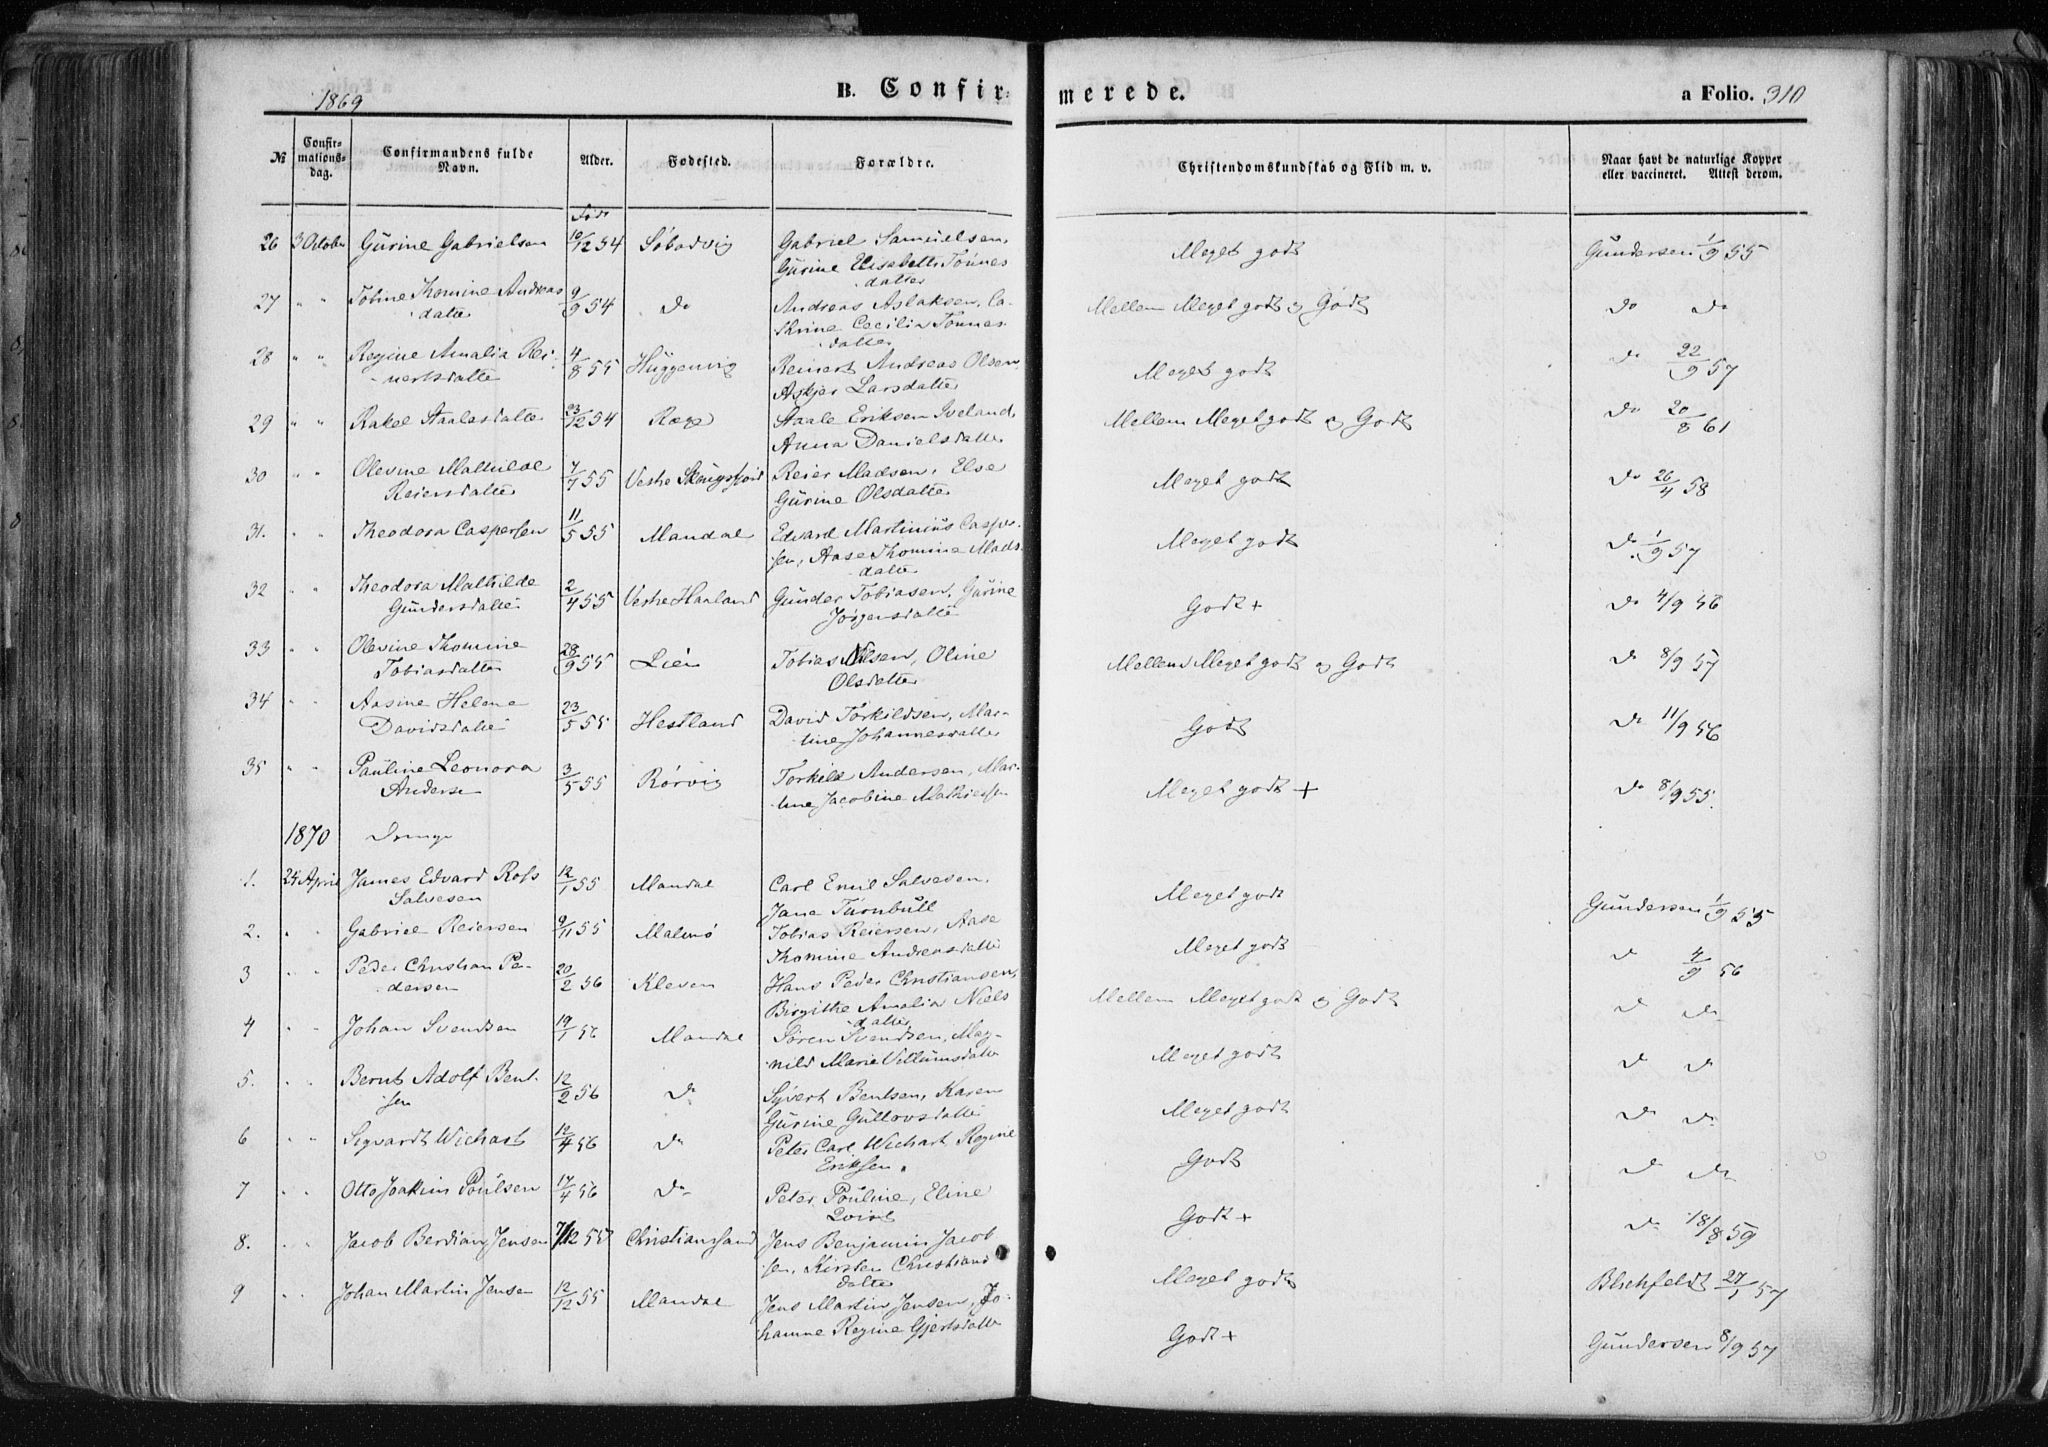 1869
B. Confirmerede.
a Folio. 310
№ Confirmationsdag. Confirmandens fulde Navn. Alder. Fødested. Forældre. Christendomskundskab og Flid m. v. Naar havt de naturlige Kopper eller vaccineret. Attest derom.
Født
26 3 October Gurine Gabrielsen 10/12 54 Søbadvig Gabriel Samuelsen, Meget godt Gundersen 1/9 55
Gurine Elisabeth Tønnes
datter
27 " " Tobine Thomine Andreas 9/9 54 Do Andreas Aslaksen, Ca- Mellem Meget godt og Godt Do Do
datter thrine Cecilia Tønnes
datter
28 " " Regine Amalia Rei- 4/8 55 Huggenvig Reinert Andreas Olsen, Meget godt Do 22/9 57
nertsdatter Askjer Larsdatter
29 " " Rakel Staalesdatter 23/12 54 Røge Staale Eriksen Iveland, Mellem Meget godt og Godt Do 20/8 61
Anna Danielsdatter
30 " " Olevine Mathilde 7/7 55 Vestre Skougsfjord Reier Madsen, Else Meget godt Do 26/4 58
Reiersdatter Gurine Olsdatter
31. " " Theodora Caspersen 11/5 55 Mandal Edvard Martinius Casper- Meget godt Do 1/9 57
sen, Aase Thomine Mads-
datter
32 " " Theodora Mathilde 2/4 55 Vestre Haaland Gunder Tobiasen, Gurine Godt + Do 4/9 56
Gundersdatter Jørgensdatter
33 " " Olevine Thomine 28/9 55 Lien Tobias Nilsen, Oline Mellem Meget godt og Godt Do 8/9 57
Tobiasdatter Olsdatter
34 " " Aasine Helene 23/5 55 Hestland David Torkildsen, Mar- Godt Do 11/9 56
Davidsdatter tine Johannesdatter
35 " " Pauline Leonora 3/5 55 Rørvig Torkild Andersen, Mar- Meget godt + Do 8/9 55.
Andersen tine Jacobine Mathiesen
1870 Drenge
1. 24 April James Edvard Ross 12/1 55 Mandal Carl Emil Salvesen, Meget godt Gundersen 1/9 55
Salvesen Jane Turnbull
2. " " Gabriel Reiersen 9/11 55 Malmø Tobias Reiersen, Aase Meget godt Do 4/9 56
Thomine Andreasdatter
3 " " Peder Christian Pe- 20/2 56 Kleven Hans Peder Christiansen, Mellem Meget godt og Godt Do Do
dersen Birgithe Amalia Niels
datter
4 " " Johan Svendsen 19/1 56 Mandal Søren Svendsen, Mag- Meget godt Do Do
nild Marie Villumsdatter
5. " " Bernt Adolf Bent- 12/2 56 Do Syvert Bentsen, Karen Meget godt Do Do
sen Gurine Gullovsdatter
6 " " Sigvardt Wichart 12/4 56 Do Peter Carl Wichart, Regine Godt Do Do
Eriksen
7 " " Otto Joakim Poulsen 17/4 56 Do Peter Pouline, Eline Godt + Do 18/8 59
Qvist
8. " " Jacob Berdian Jensen 7/12 55 Christianssand Jens Benjamin Jacob Meget godt Blichfeldt 27/1 57
sen, Kirsten Christians
datter
9 " " Johan Martin Jensen 12/12 55 Mandal Jens Martin Jensen, Jo- Godt + Gundersen 8/9 57
hanne Regine Gjertsdatter